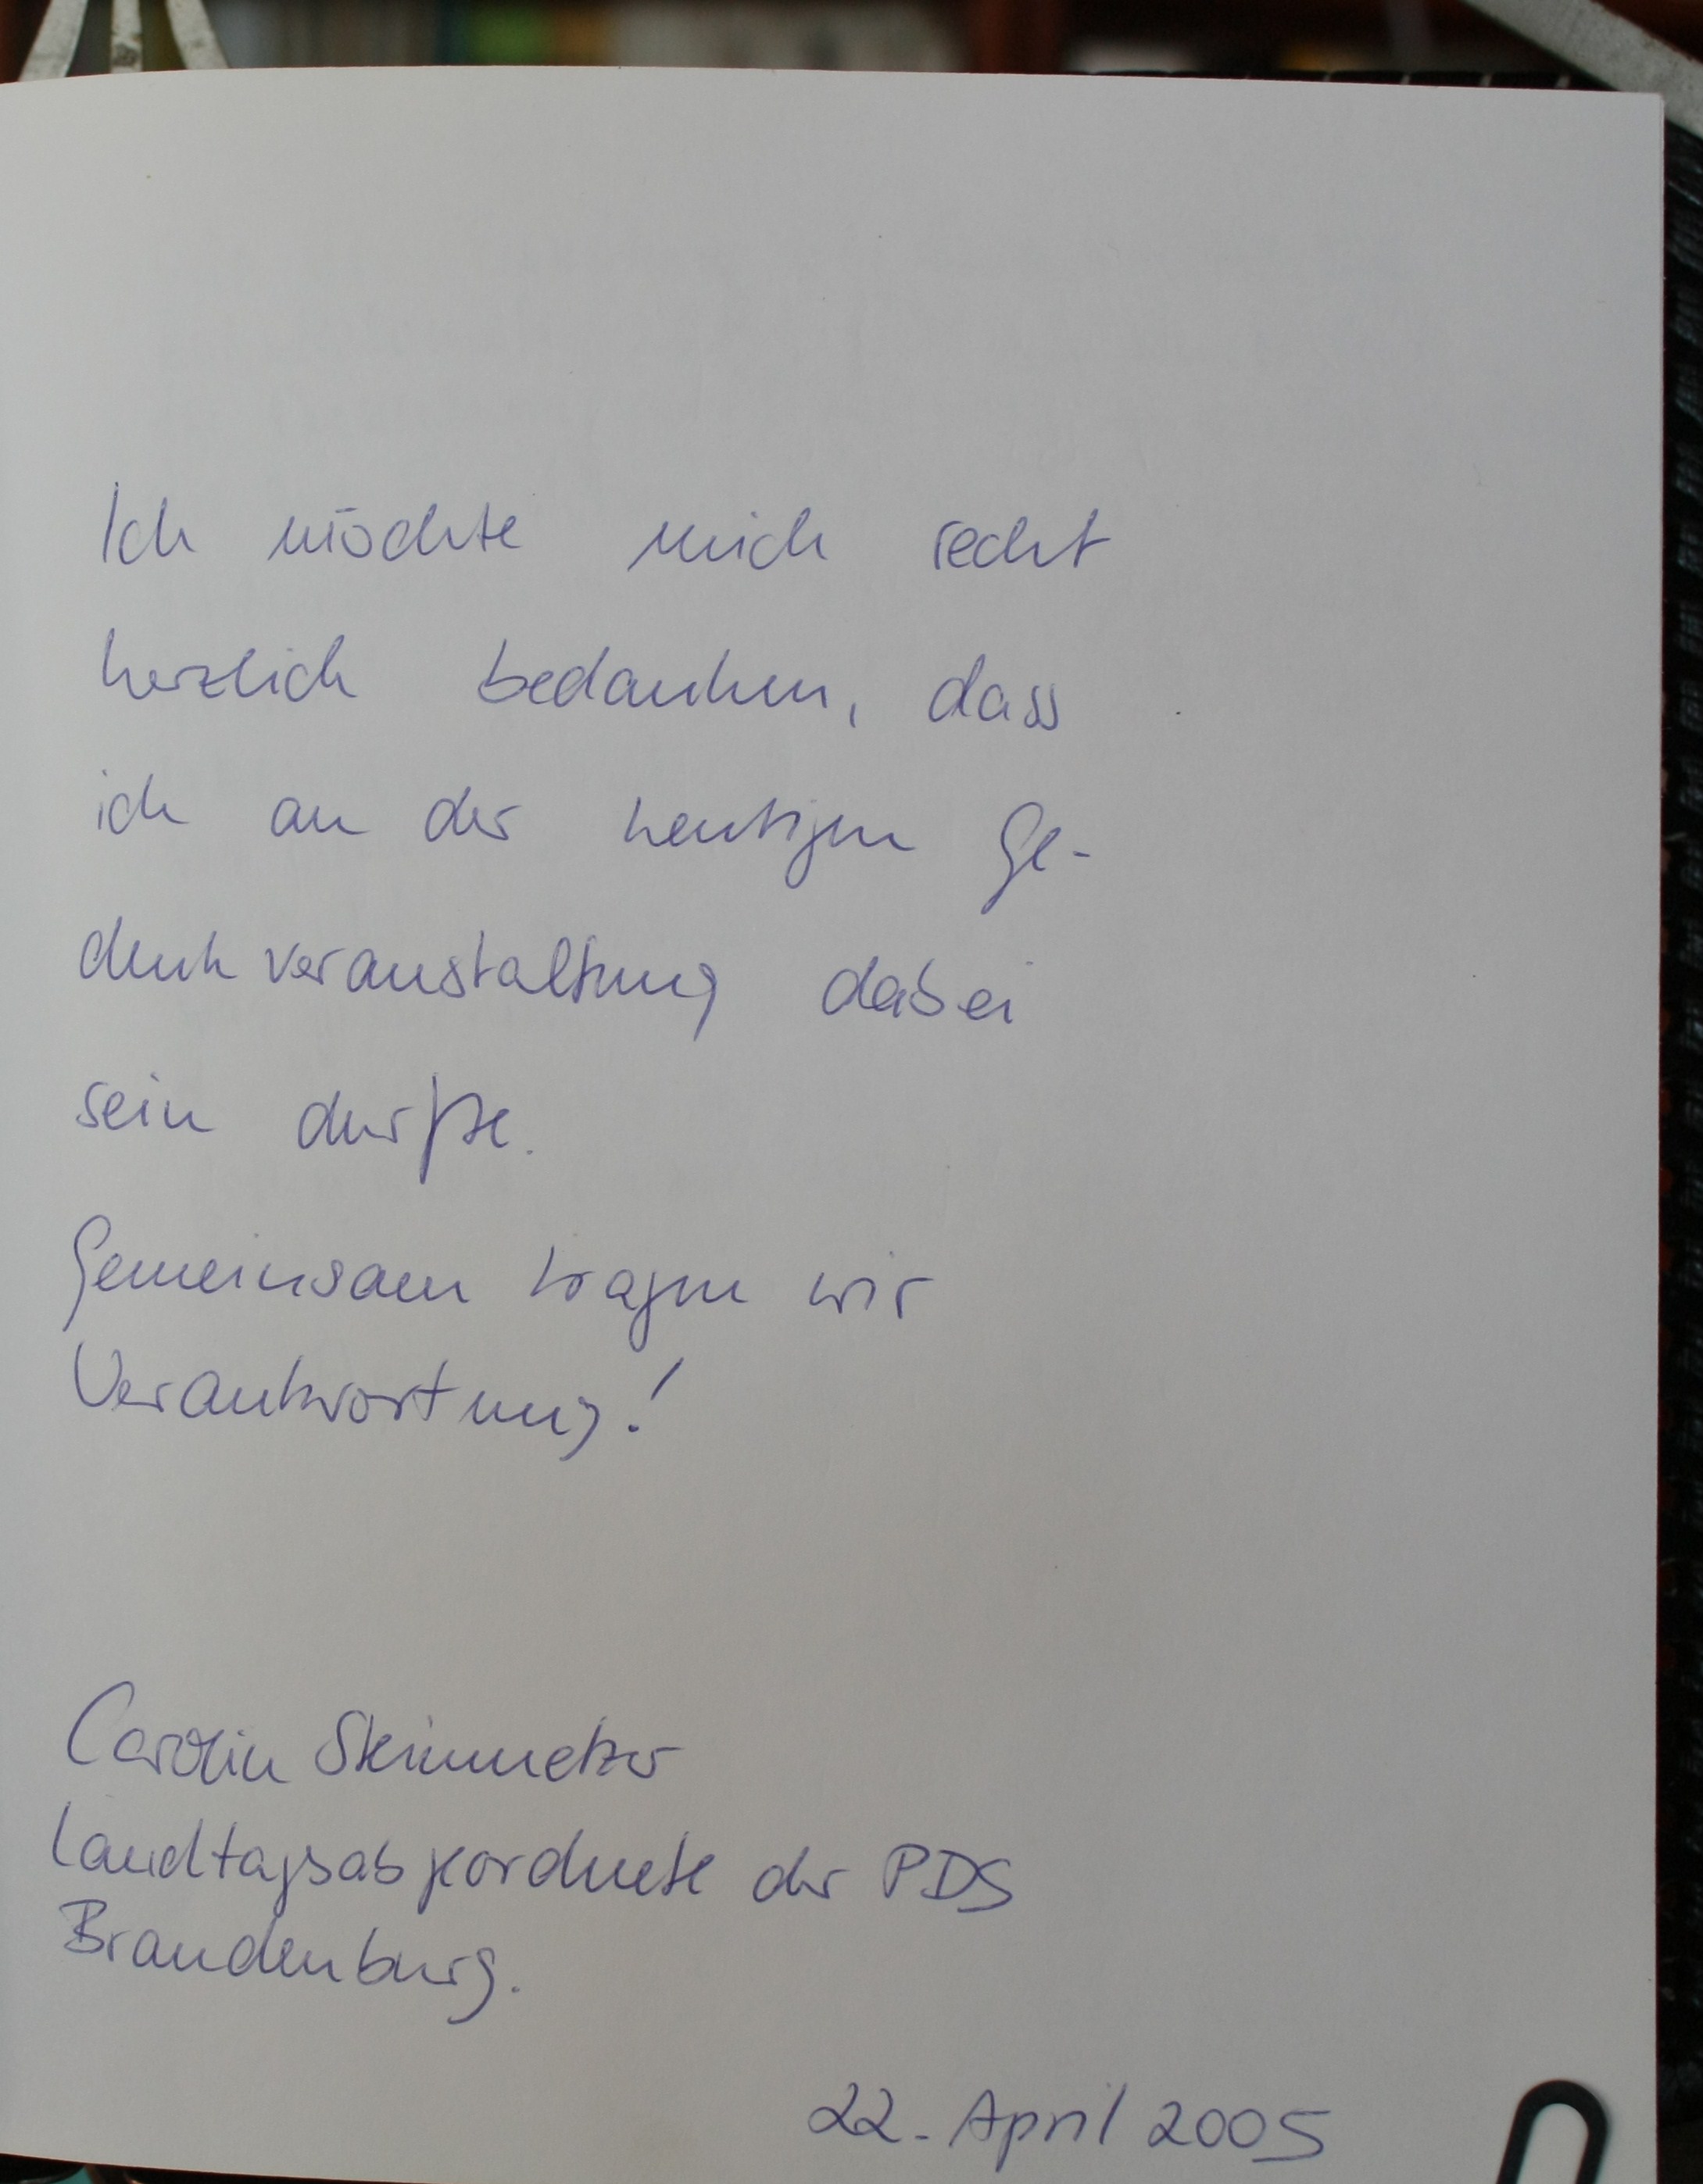 Ich möchte mich recht
herzlich bedanken, dass
ich an der heutigen Ge-
denkveranstaltung dabei
sein durfte.
Gemeinsam tragen wir
Verantwortung!
Carolin Steinmetzer
Landtagsabgeordnete der PDS
Brandenburg.
22. April 2005